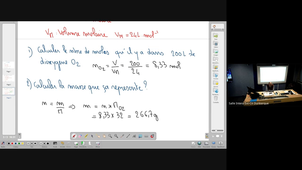 Vn volume molaire Vn = 24L mol⁻¹
1) Calculer le nbre de moles qu'il y a dans 200L de
dioxygène O2
nO2 = V/Vn = 200/24 = 8,33 mol
2) Calculer la masse que ça représente ?
n = m/M ⇒ m = n × MO2
= 8,33 × 32 = 266,7g